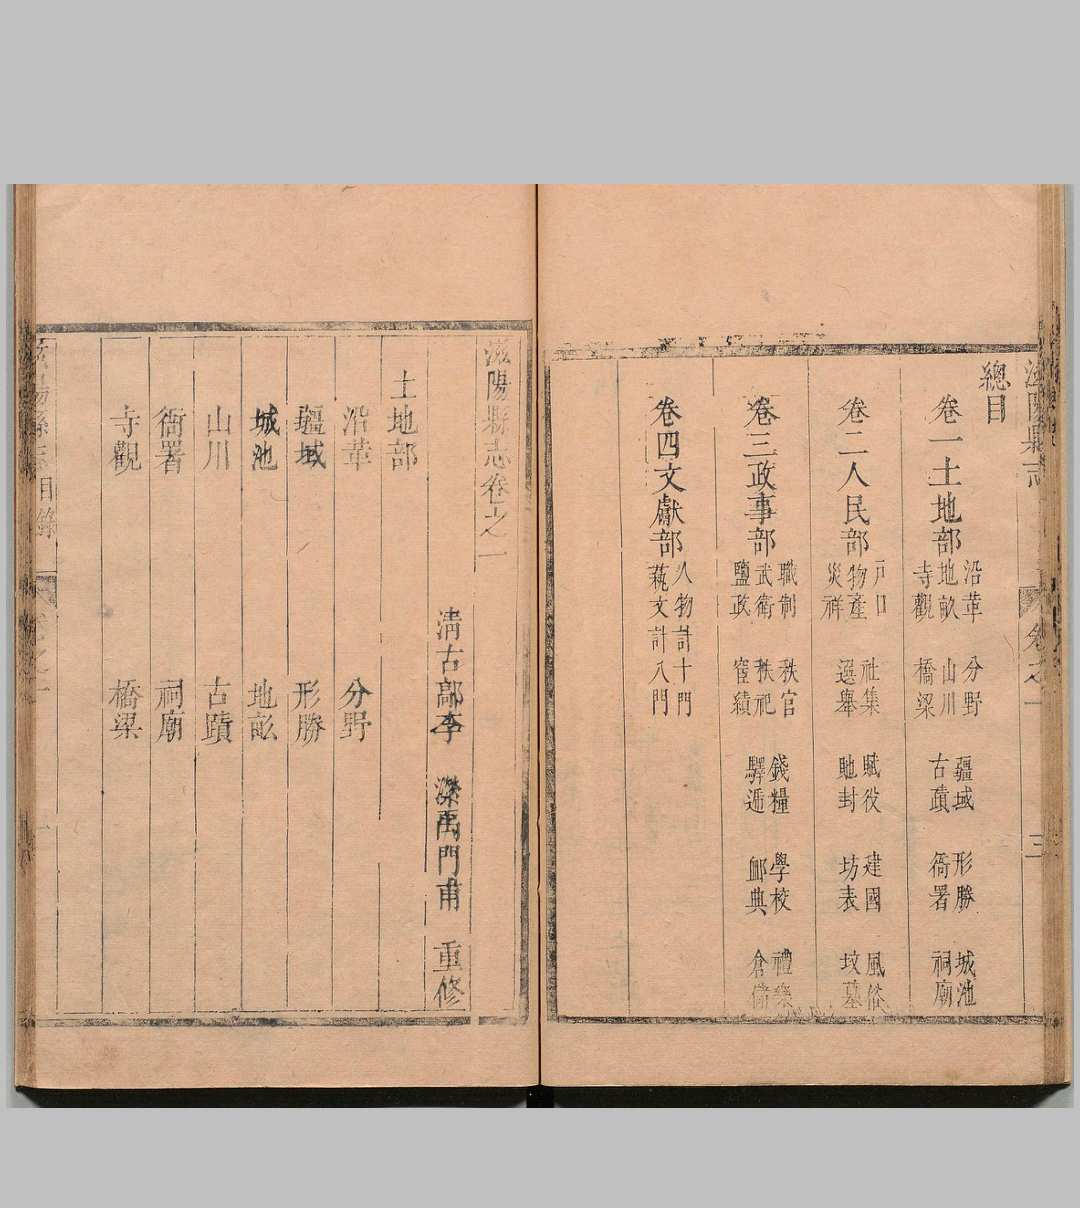 滋陽縣志 卷之一 三
總目
卷一土地部
沿革 分野 疆域 形勝 城池
地畝 山川 古蹟 衙署 祠廟
寺觀 橋梁
卷二人民部
戶口 社集 賦役 建國 風俗
物產 選舉 貤封 坊表 坟墓
災祥
卷三政事部
職制 秩官 錢糧 學校 禮樂
武衛 秩祀 驛遞 卹典 倉儲
鹽政 宦績
卷四文獻部
人物計十門
藝文計八門
滋陽縣志卷之一
清古鄗李 濚禹門甫 重修
土地部
沿革 分野
疆域 形勝
城池 地畝
山川 古蹟
衙署 祠廟
寺觀 橋梁
滋陽縣志目錄 卷之一 一